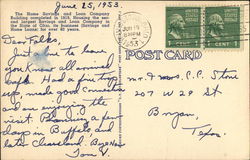 June 25, 1953.
The Home Savings and Loan Company
Building completed in 1919. Housing the
largest Savings and Loan Company in
the State of Ohio. In business Savings and
Home Loans for over 60 years.
Dear Folks,
Just a line to leave
you know all arrived
safe. Had a fine trip
up, made good connections
and are enjoying the
visit. Planning a few
day in Buffalo and
later Cleveland. Bye now
Tom V.
JUN 25
PM
1953
1¢ 1¢
POST CARD
Mr. & Mrs. C. C. Stone
207 W 29 St
Bryan,
Texas.